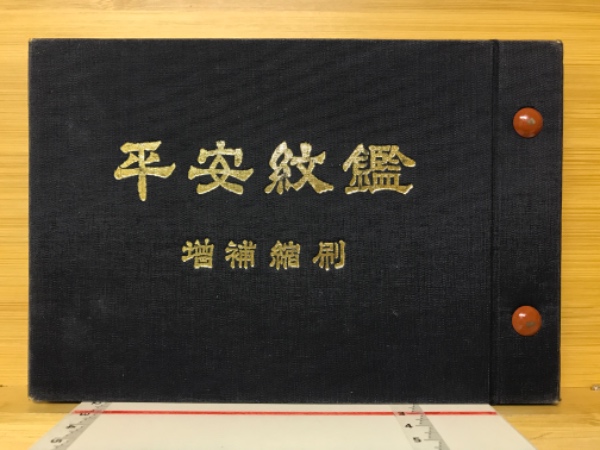 平安紋鑑
増補縮刷